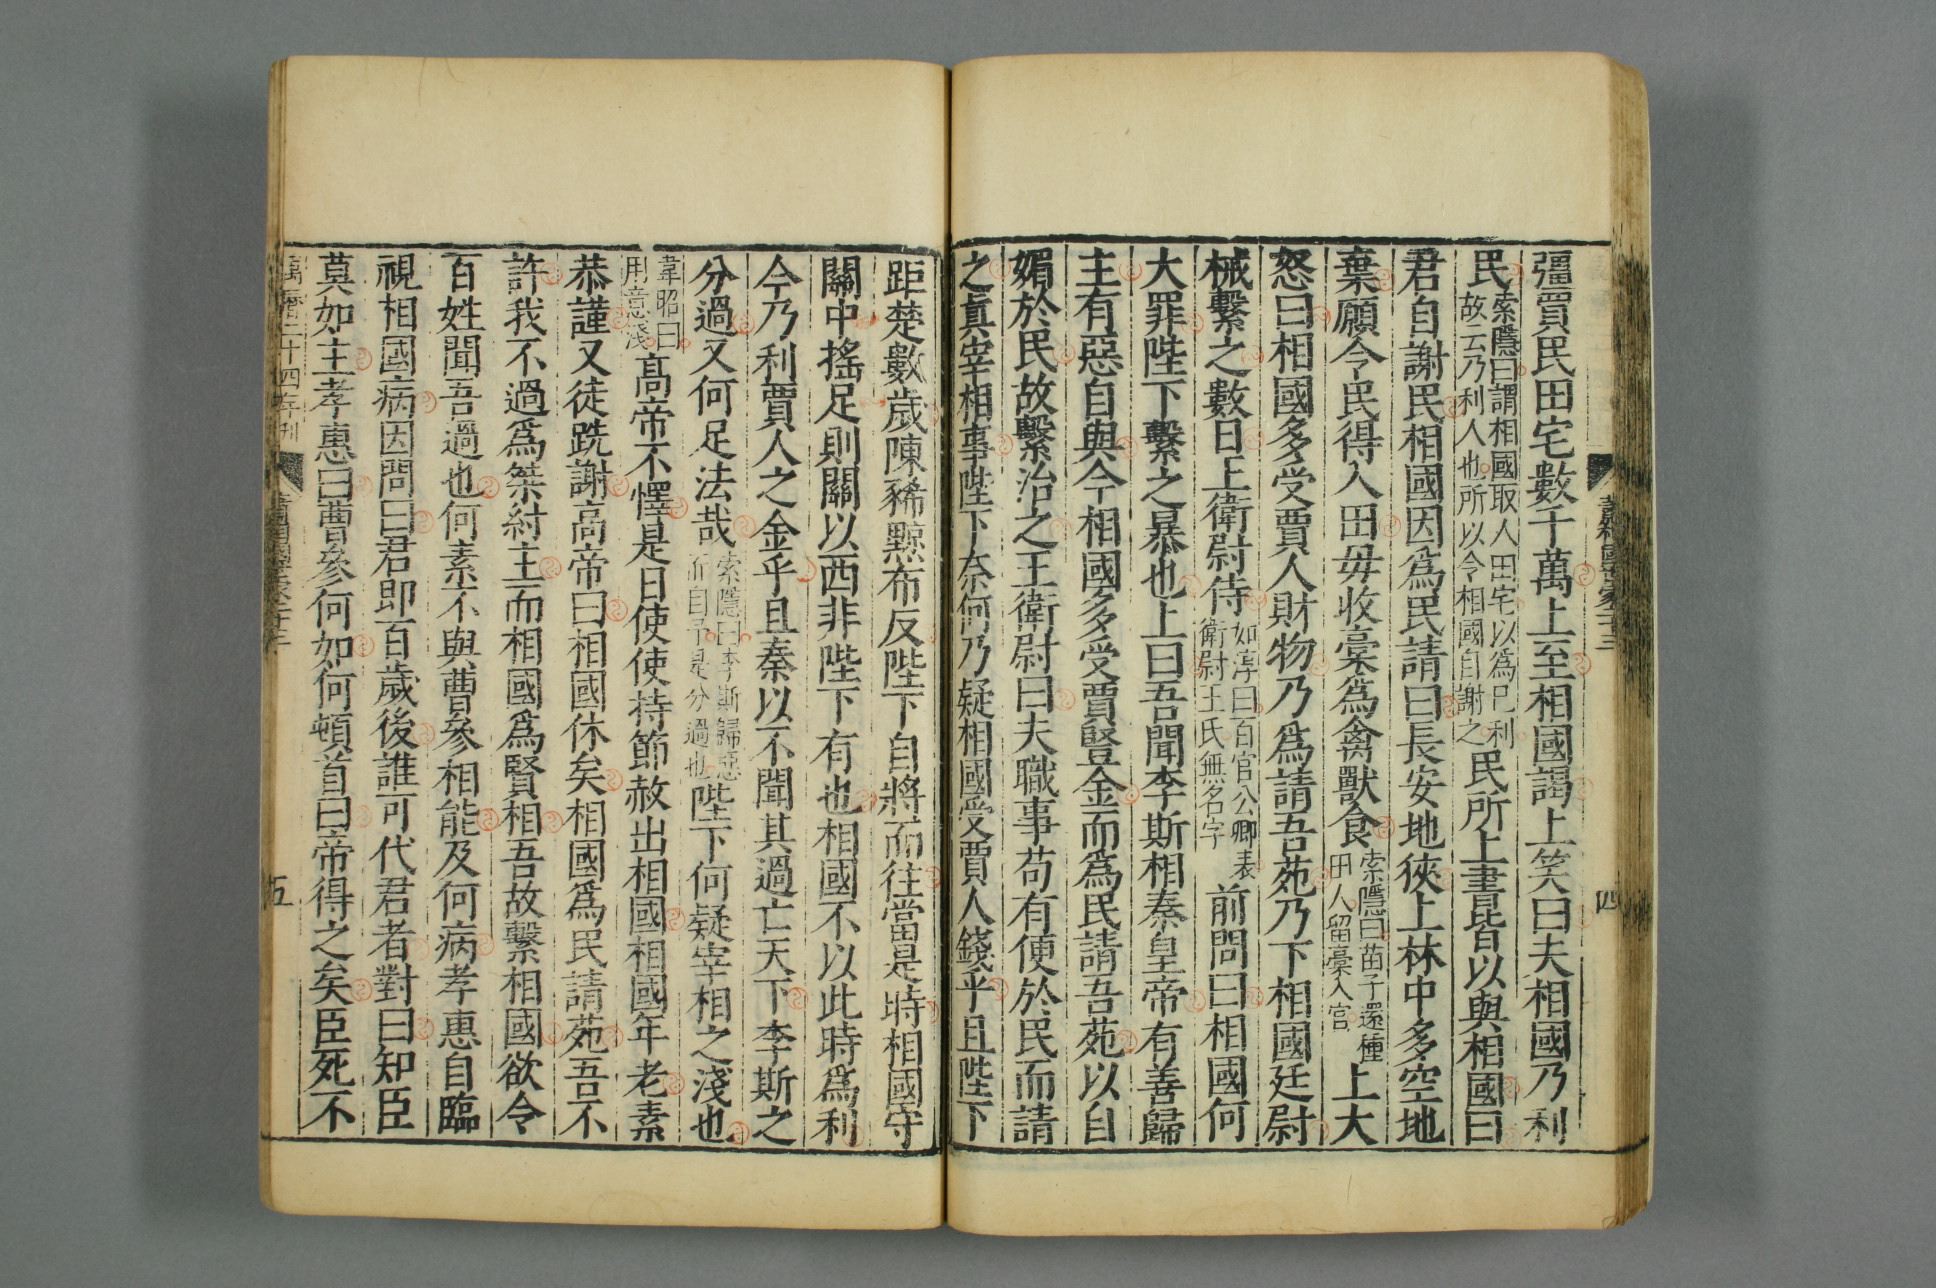 彊買民田宅數千萬上至相國謁上笑曰夫相國乃利
民索隱曰謂相國取人田宅以爲已利故云乃利人也所以令相國自謝之民所上書皆以與相國曰
君自謝民相國因爲民請曰長安地狹上林中多空地
棄願令民得入田毋收稾爲禽獸食索隱曰苗子還種田人留稾入官上大
怒曰相國多受賈人財物乃爲請吾苑乃下相國廷尉
械繫之數日王衛尉侍如淳曰百官公卿表衛尉王氏無名字前問曰相國何
大罪陛下繫之暴也上曰吾聞李斯相秦皇帝有善歸
主有惡自與今相國多受賈豎金而爲民請吾苑以自
媚於民故繫治之王衛尉曰夫職事苟有便於民而請
之眞宰相事陛下奈何乃疑相國受賈人錢乎且陛下
蕭相國世家二十三
四
距楚數歲陳豨黥布反陛下自將而往當是時相國守
關中搖足則關以西非陛下有也相國不以此時爲利
今乃利賈人之金乎且秦以不聞其過亡天下李斯之
分過又何足法哉索隱曰李斯歸惡而自予是分過也陛下何疑宰相之淺也
韋昭曰用意淺高帝不懌是日使使持節赦出相國相國年老素
恭謹又徒跣謝高帝曰相國休矣相國爲民請苑吾不
許我不過爲桀紂主而相國爲賢相吾故繫相國欲令
百姓聞吾過也何素不與曹參相能及何病孝惠自臨
視相國病因問曰君即百歲後誰可代君者對曰知臣
莫如主孝惠曰曹參何如何頓首曰帝得之矣臣死不
萬曆二十四年刊
五